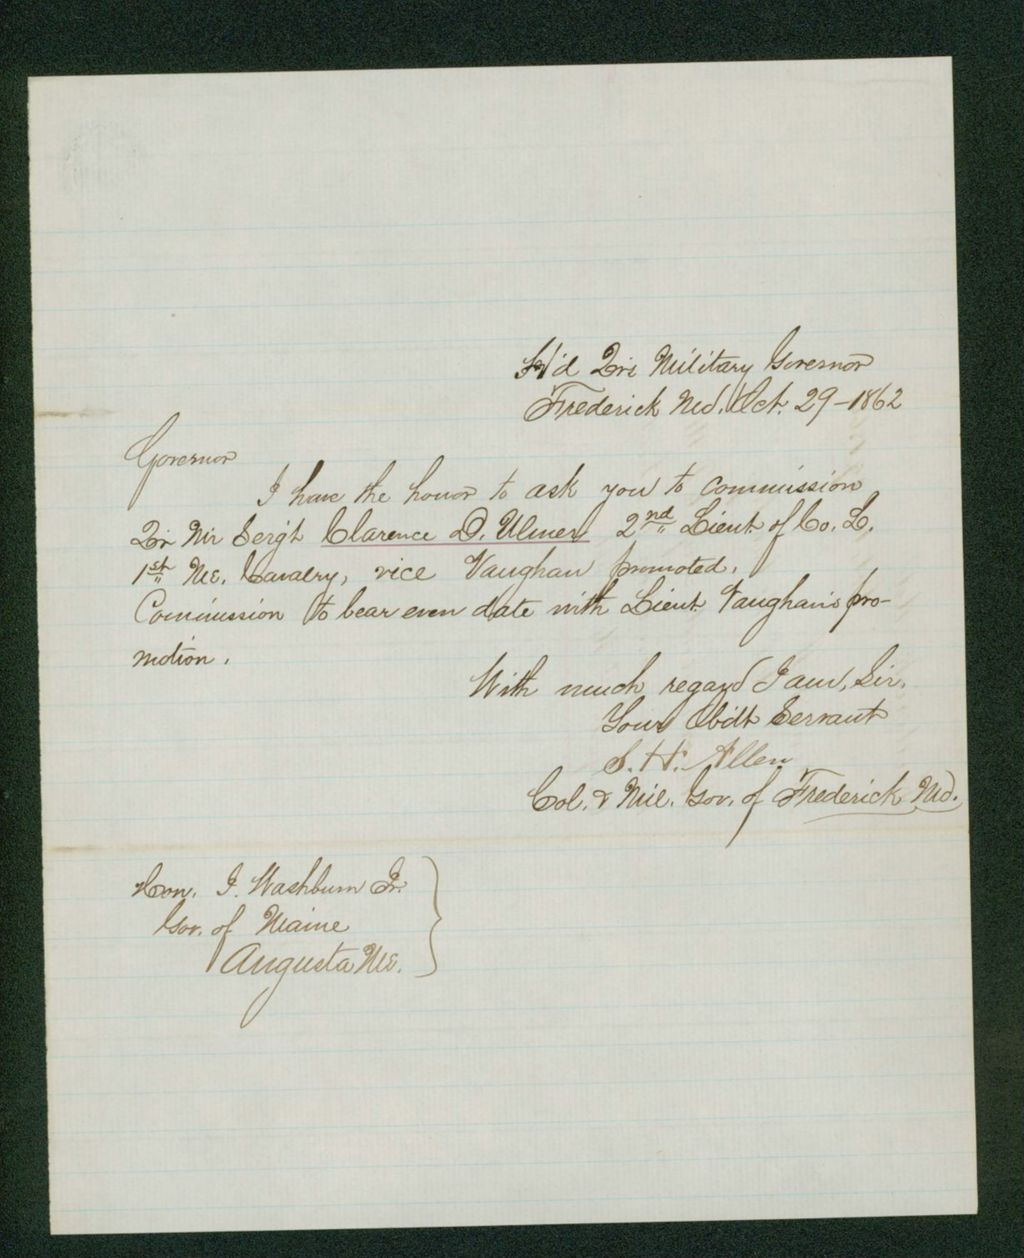 H'd Qrs Military Governor
Frederick Md. Oct. 29-1862
Governor
I have the honor to ask you to commission
Qr Mr Serg't Clarence D. Ulmer 2nd Lieut of Co. L.
1st Me. Cavalry, vice Vaughan promoted.
Commission to bear even date with Lieut Vaughan's pro-
motion.
With much regard I am, Sir.
Your Obdt Servant
S. H. Allen
Col. & Mil. Gov. of Frederick Md.
Hon. I. Washburn Jr.
Gov. of Maine
Augusta Me.